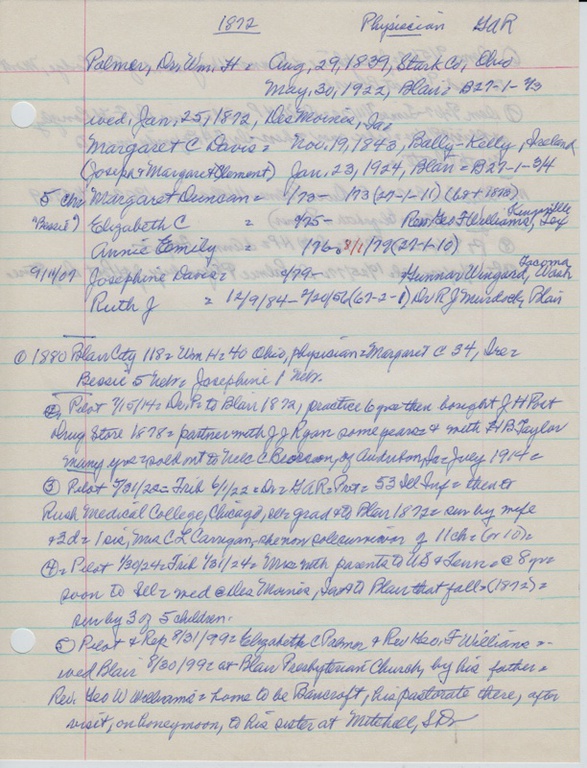 1872 Physiecian GAR
Palmer, Dr, Wm. H = Aug, 29, 1839, Stark Co, Ohio
May, 30, 1922, Blair = B27-1-1/3
wed, Jan, 25, 1872, Des Moines, Ia =
Margaret C Davis = Nov, 19, 1843, Bally-Kelly, Ireland
(Joseph + Margaret Clement) Jan, 23, 1924, Blair = B27-1-3/4
5 chr Margaret Duncan = 1/73 - 1/73 (27-1-11) (68+1873)
"Bessie") Elizabeth C = 9/75 - Rev Geo F Williams, Kingsville Tex
Annie Emily = 1/76 - 8/1/79 (27-1-10)
9/11/07 Josephine Davis = 2/79 - Gunnar Wingard, Tacoma Wash
Ruth J = 12/9/84 - 2/20/56 (67-2-1) Dr R J Murdoch, Blair
① 1880 Blair City 118 = Wm H = 40 Ohio, Physician = Margaret C 34, Ire =
Bessie 5 Nebr = Josephine 1 Nebr.
②, Pilot 7/15/14 = Dr, P = to Blair 1872, practice 6 yrs then bought J H Post
Drug Store 1878 = partner with J J Ryan some years = + with H B Taylor
many yrs = sold out to Nels C of Audubon, Ia = July 1914 =
③ Pilot 5/31/22 = Trib 6/1/22 = Dr = GAR = Pvt = 53 Ill Inf = then to
Rush Medical College, Chicago, Ill = grad + to Blair 1872 = sur by wife
+ 3d = 1 sis, Mrs C L Carrigan, she now sole survivor of 11 ch = (or 10) =
④ = Pilot 1/30/24 = Trib 1/31/24 = Mrs = with parents to US + Tenn = @ 8 yrs =
soon to Ill = wed @ Des Moines, Ia = + to Blair that fall = (1872) =
sur by 3 of 5 children.
⑤ Pilot + Rep 8/31/99 = Elizabeth C Palmer + Rev Geo, F Williams =
wed Blair 8/30/99 = at Blair Presbyterian Church, by his father =
Rev. Geo W Williams = home to be Bancroft, his pastorate there, after
visit, on honeymoon, to his sister at Mitchell, S.D.